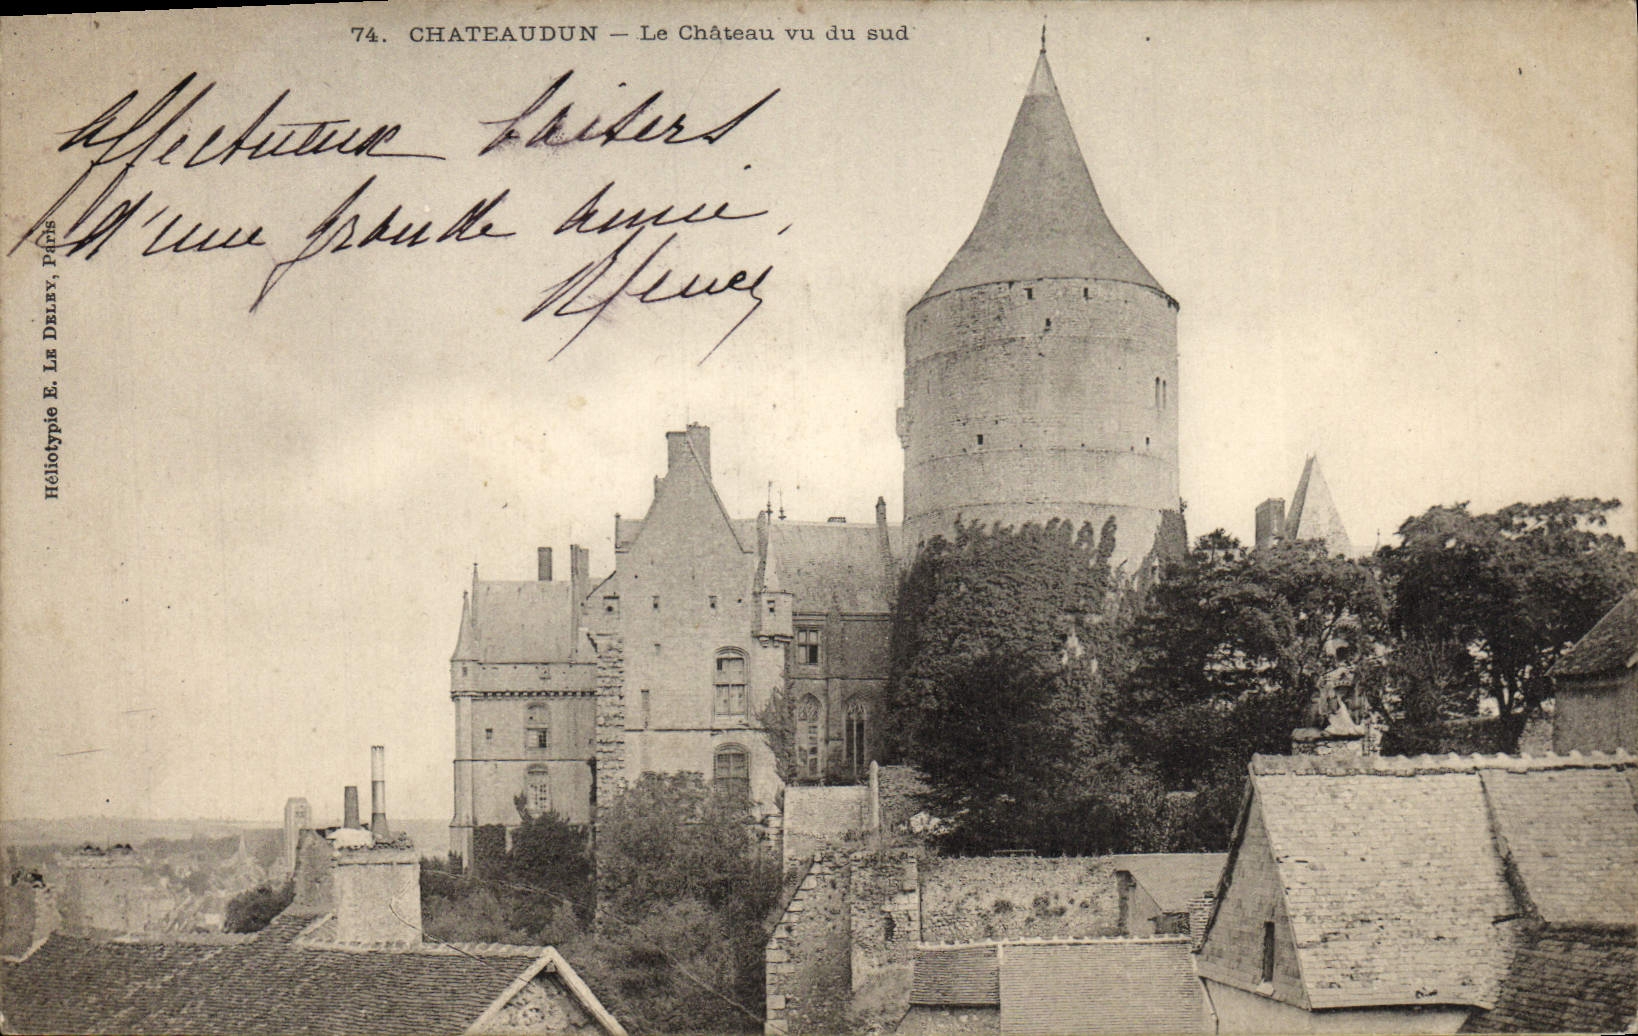 74. CHATEAUDUN — Le Château vu du sud
Affectueux baisers
d'une grande amie,
Héliotypie E. Le Deley, Paris